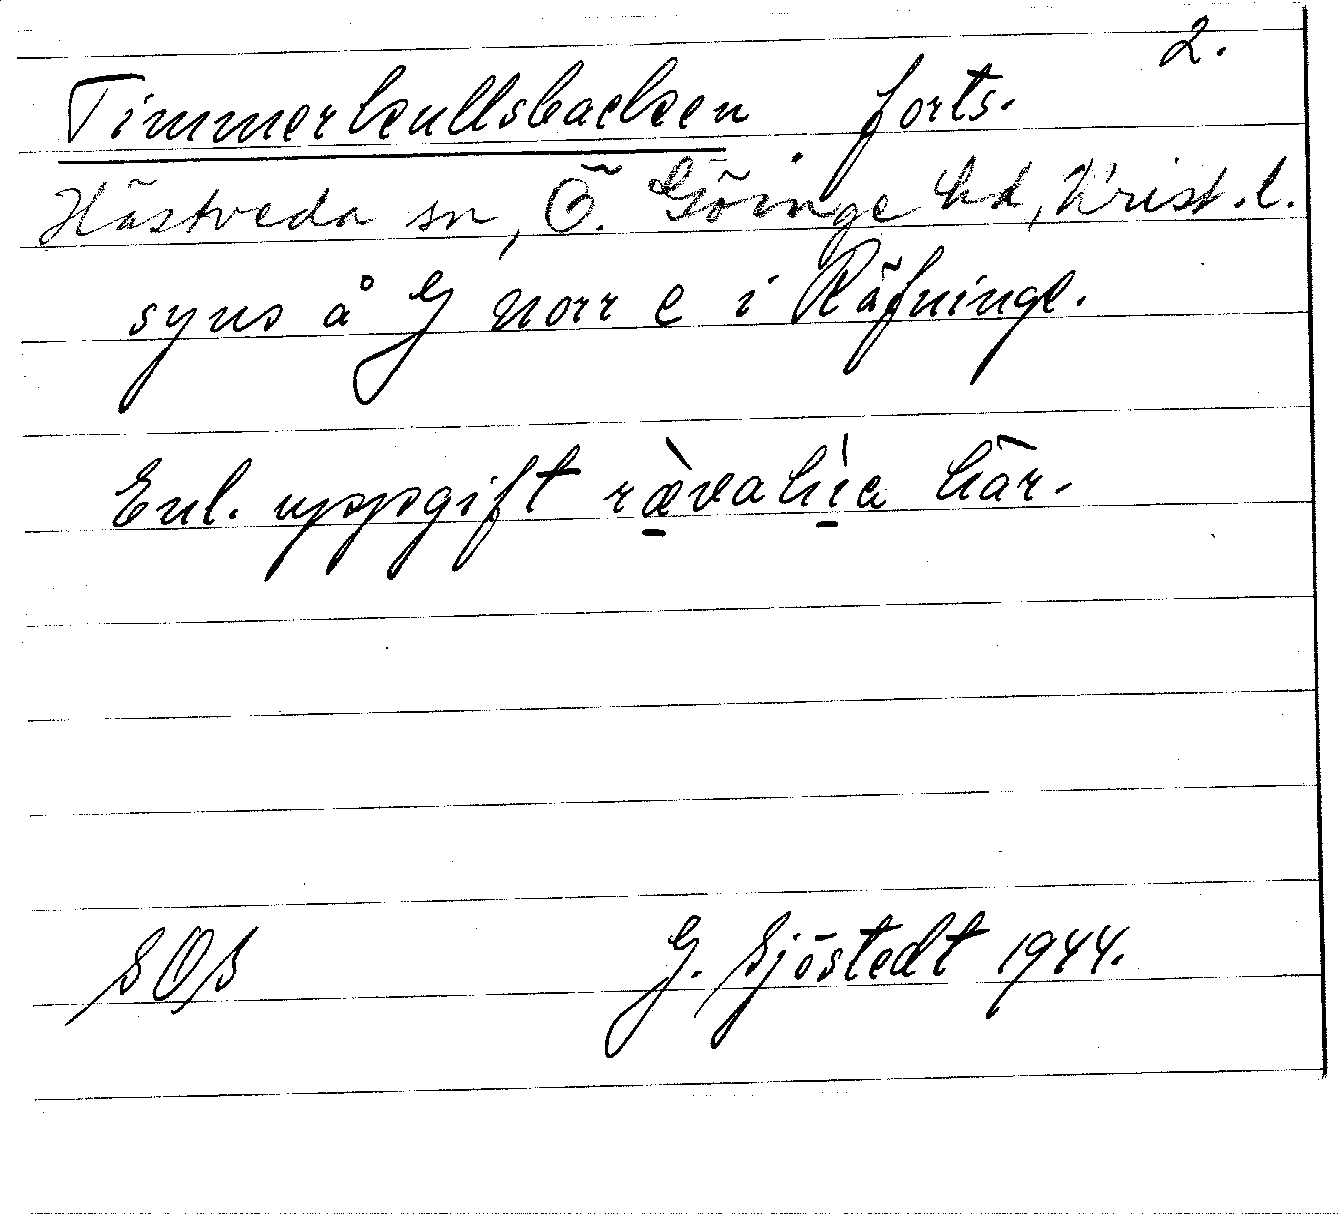 2.
Timmerkullsbacken forts.
Hästveda sn, Ö. Göinge hd, Krist. l.
syns å G norr e i Räfninge.
Enl. uppgift rævahia här.
SOS G. Sjöstedt 1944.